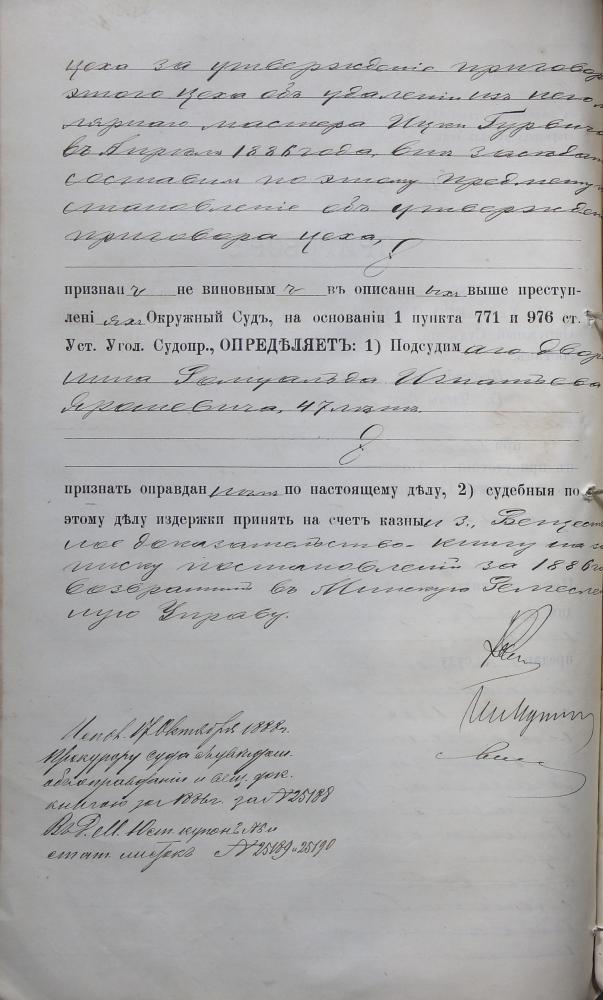 цеха за утвержденіе приговора
этого цеха объ удаленіи изъ него
лярнаго мастера Ицки Гурвича
въ Апрелѣ 1886 года,
составилъ по этому предмету
становленіе объ утвержден
приговора цеха,
признан ъ не виновным ъ въ описанн ыхъ выше преступ-
лені яхъ Окружный Судъ, на основаніи 1 пункта 771 и 976 ст.
Уст. Угол. Судопр., ОПРЕДѢЛЯЕТЪ: 1) Подсудим аго двор
нина Ромуальда Игнатьева
Ярошевича, 47 лѣтъ
признать оправдан нымъ по настоящему дѣлу, 2) судебныя по
этому дѣлу издержки принять на счетъ казны и 3., Вещест
ное доказательство - книгу на за
писку постановленій за 1886 г.
возвратить въ Минскую Ремеслен
ную Управу.
Исполн. 17 Октября 1888 г.
Прокурору суда
объ оправданіи и вещ. док.
книгою за 1886 г. за № 25188
Въ Д. М. Юст купонъ и
стат. листокъ № 25189 и 25190